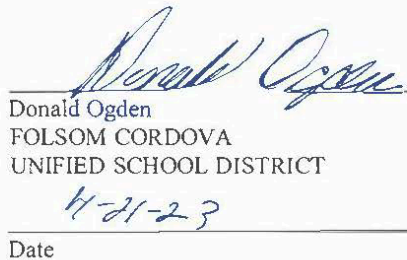 Donald Ogden
Donald Ogden
FOLSOM CORDOVA
UNIFIED SCHOOL DISTRICT
4-21-23
Date